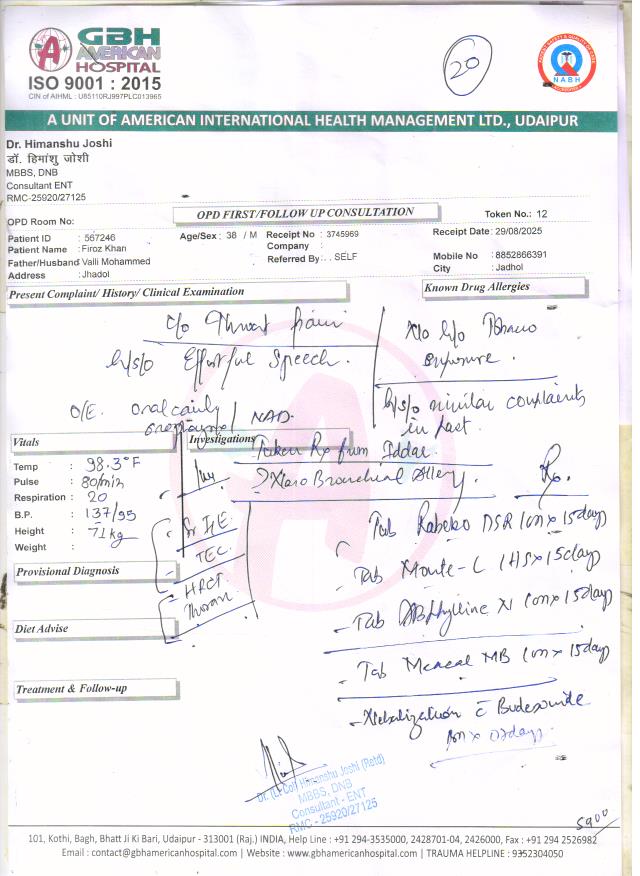 GBH
AMERICAN
HOSPITAL
ISO 9001 : 2015
CIN of AIHML : U85110RJ997PLC013965
20
NABH
A UNIT OF AMERICAN INTERNATIONAL HEALTH MANAGEMENT LTD., UDAIPUR
Dr. Himanshu Joshi
डॉ. हिमांशु जोशी
MBBS, DNB
Consultant ENT
RMC-25920/27125
OPD Room No:
OPD FIRST/FOLLOW UP CONSULTATION
Token No.: 12
Patient ID : 567246 Age/Sex : 38 / M Receipt No : 3745969 Receipt Date : 29/08/2025
Patient Name : Firoz Khan Company :
Father/Husband Vaili Mohammed Referred By : . . SELF Mobile No : 8852866391
Address : Jhadol City : Jadhol
Present Complaint/ History/ Clinical Examination
Known Drug Allergies
c/o Throat pain
h/s/o Effortful Speech.
h/o
exposure.
h/s/o similar complaints
in past.
O/E. oral cavity
NAD.
Vitals
Investigations
Temp : 98.3°F
Pulse : 80/min
Respiration : 20
B.P. : 137/95
Height :
71kg
Weight :
Taken Rx from
Bronchial
Inv
Sr IgE
TEC
HRCT
Thorax
Rx.
Tab Rabeko DSR 1on x 15days
Tab Monte-L 1HS x 15days
Tab x 15days
Tab MB 1on x 15days
Nebulization c Budesonide
days
Provisional Diagnosis
Diet Advise
Treatment & Follow-up
Dr. (Lt Col) Himanshu Joshi (Retd)
MBBS, DNB
Consultant - ENT
RMC - 25920/27125
5900
101, Kothi, Bagh, Bhatt Ji Ki Bari, Udaipur - 313001 (Raj.) INDIA, Help Line : +91 294-3535000, 2428701-04, 2426000, Fax : +91 294 2526982
Email : contact@gbhamericanhospital.com | Website : www.gbhamericanhospital.com | TRAUMA HELPLINE : 9352304050